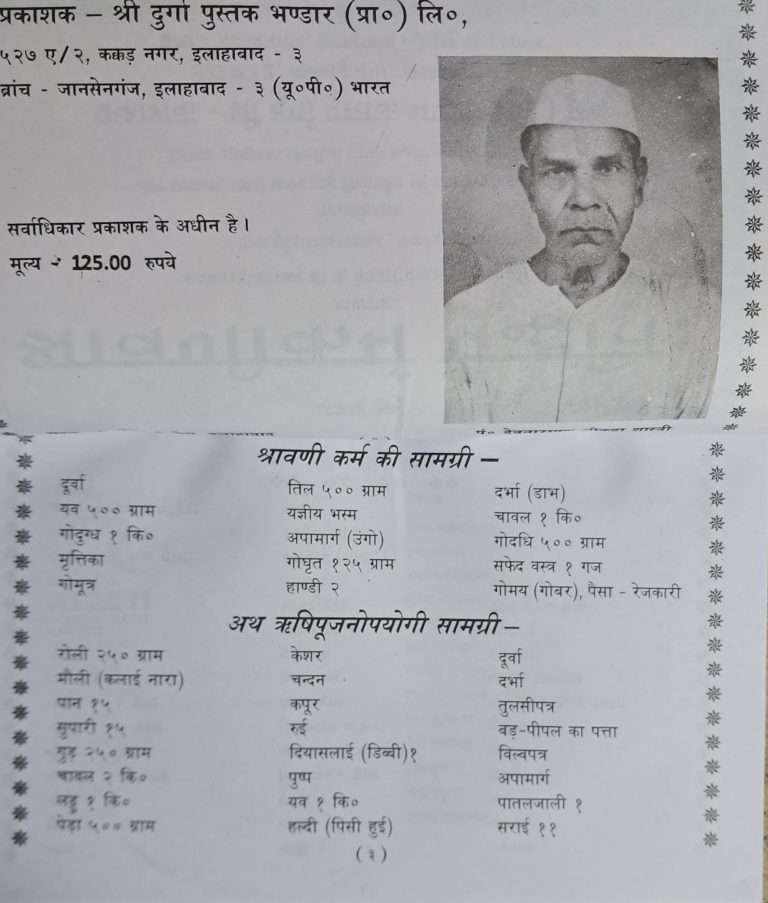 प्रकाशक – श्री दुर्गा पुस्तक भण्डार (प्रा०) लि०,
५२७ ए/२, कक्कड़ नगर, इलाहाबाद - ३
ब्रांच - जानसेनगंज, इलाहाबाद - ३ (यू०पी०) भारत
सर्वाधिकार प्रकाशक के अधीन है।
मूल्य - 125.00 रुपये
श्रावणी कर्म की सामग्री –
दूर्वा तिल ५०० ग्राम दर्भा (डाभ)
यव ५०० ग्राम यज्ञीय भस्म चावल १ कि०
गोदुग्ध १ कि० अपामार्ग (उंगो) गोदधि ५०० ग्राम
मृत्तिका गोघृत १२५ ग्राम सफेद वस्त्र १ गज
गोमूत्र हाण्डी २ गोमय (गोबर), पैसा - रेजकारी
अथ ऋषिपूजनोपयोगी सामग्री –
रोली २५० ग्राम केशर दूर्वा
मौली (कलाई नारा) चन्दन दर्भा
पान १५ कपूर तुलसीपत्र
सुपारी १५ रुई बड़-पीपल का पत्ता
गुड़ २५० ग्राम दियासलाई (डिब्बी) १ विल्वपत्र
चावल २ कि० पुष्प अपामार्ग
लड्डू १ कि० यव १ कि० पातलजाली १
पेड़ा ५०० ग्राम हल्दी (पिसी हुई) सराई ११
( ३ )